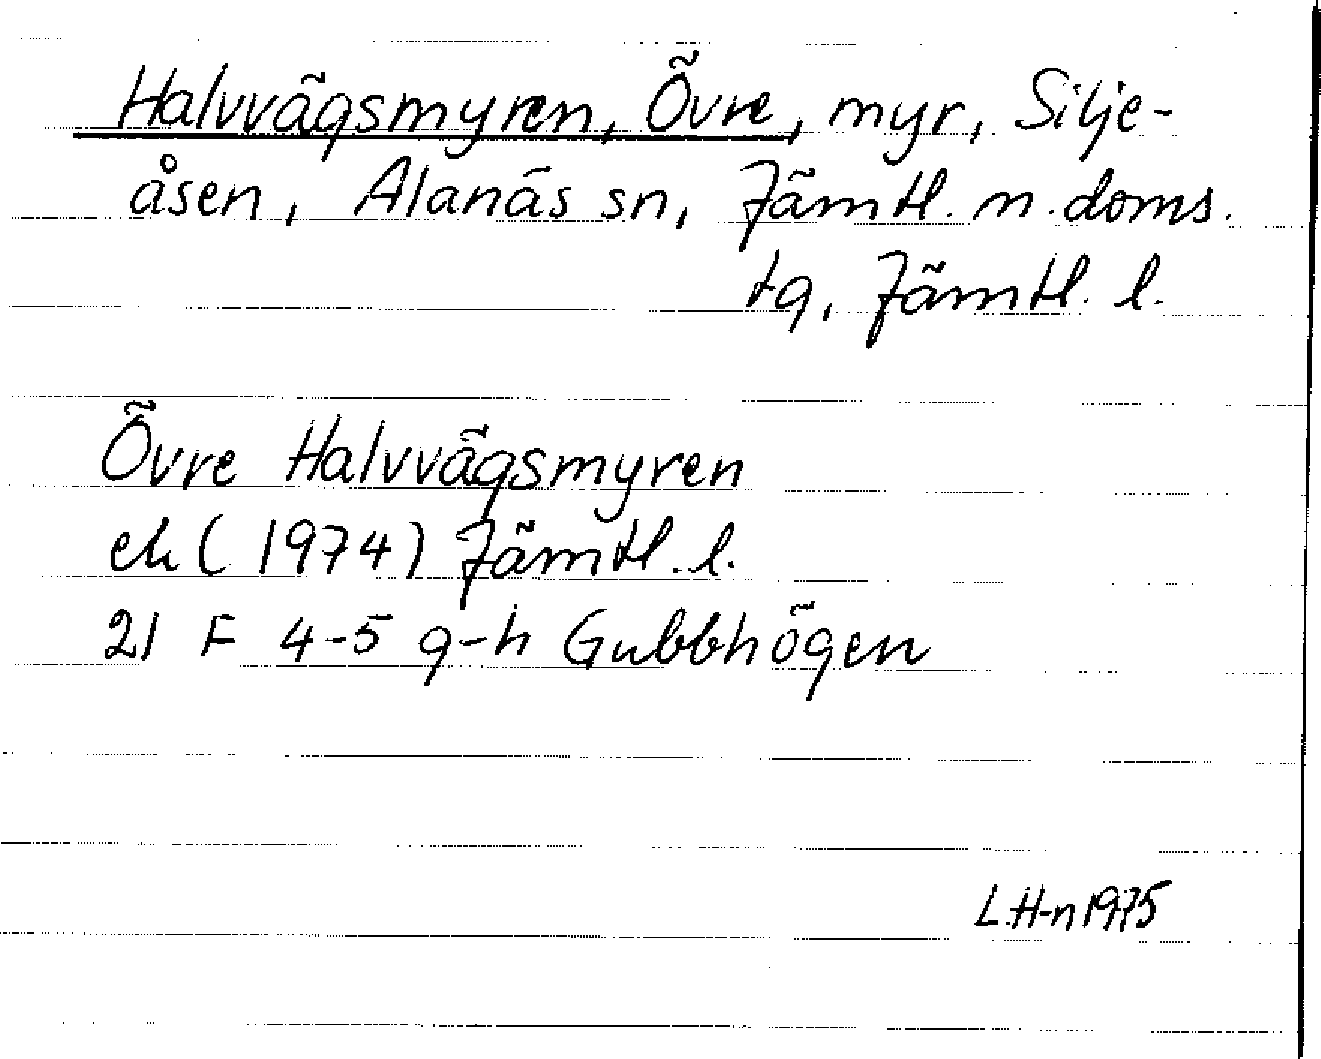 Halvvägsmyren, Övre, myr, Silje-
åsen, Alanäs sn, Jämtl. n. doms.
tg, Jämtl. l.
Övre Halvvägsmyren
ek (1974) Jämtl. l.
21 F 4-5 g-h Gubbhögen
L.H-n 1975